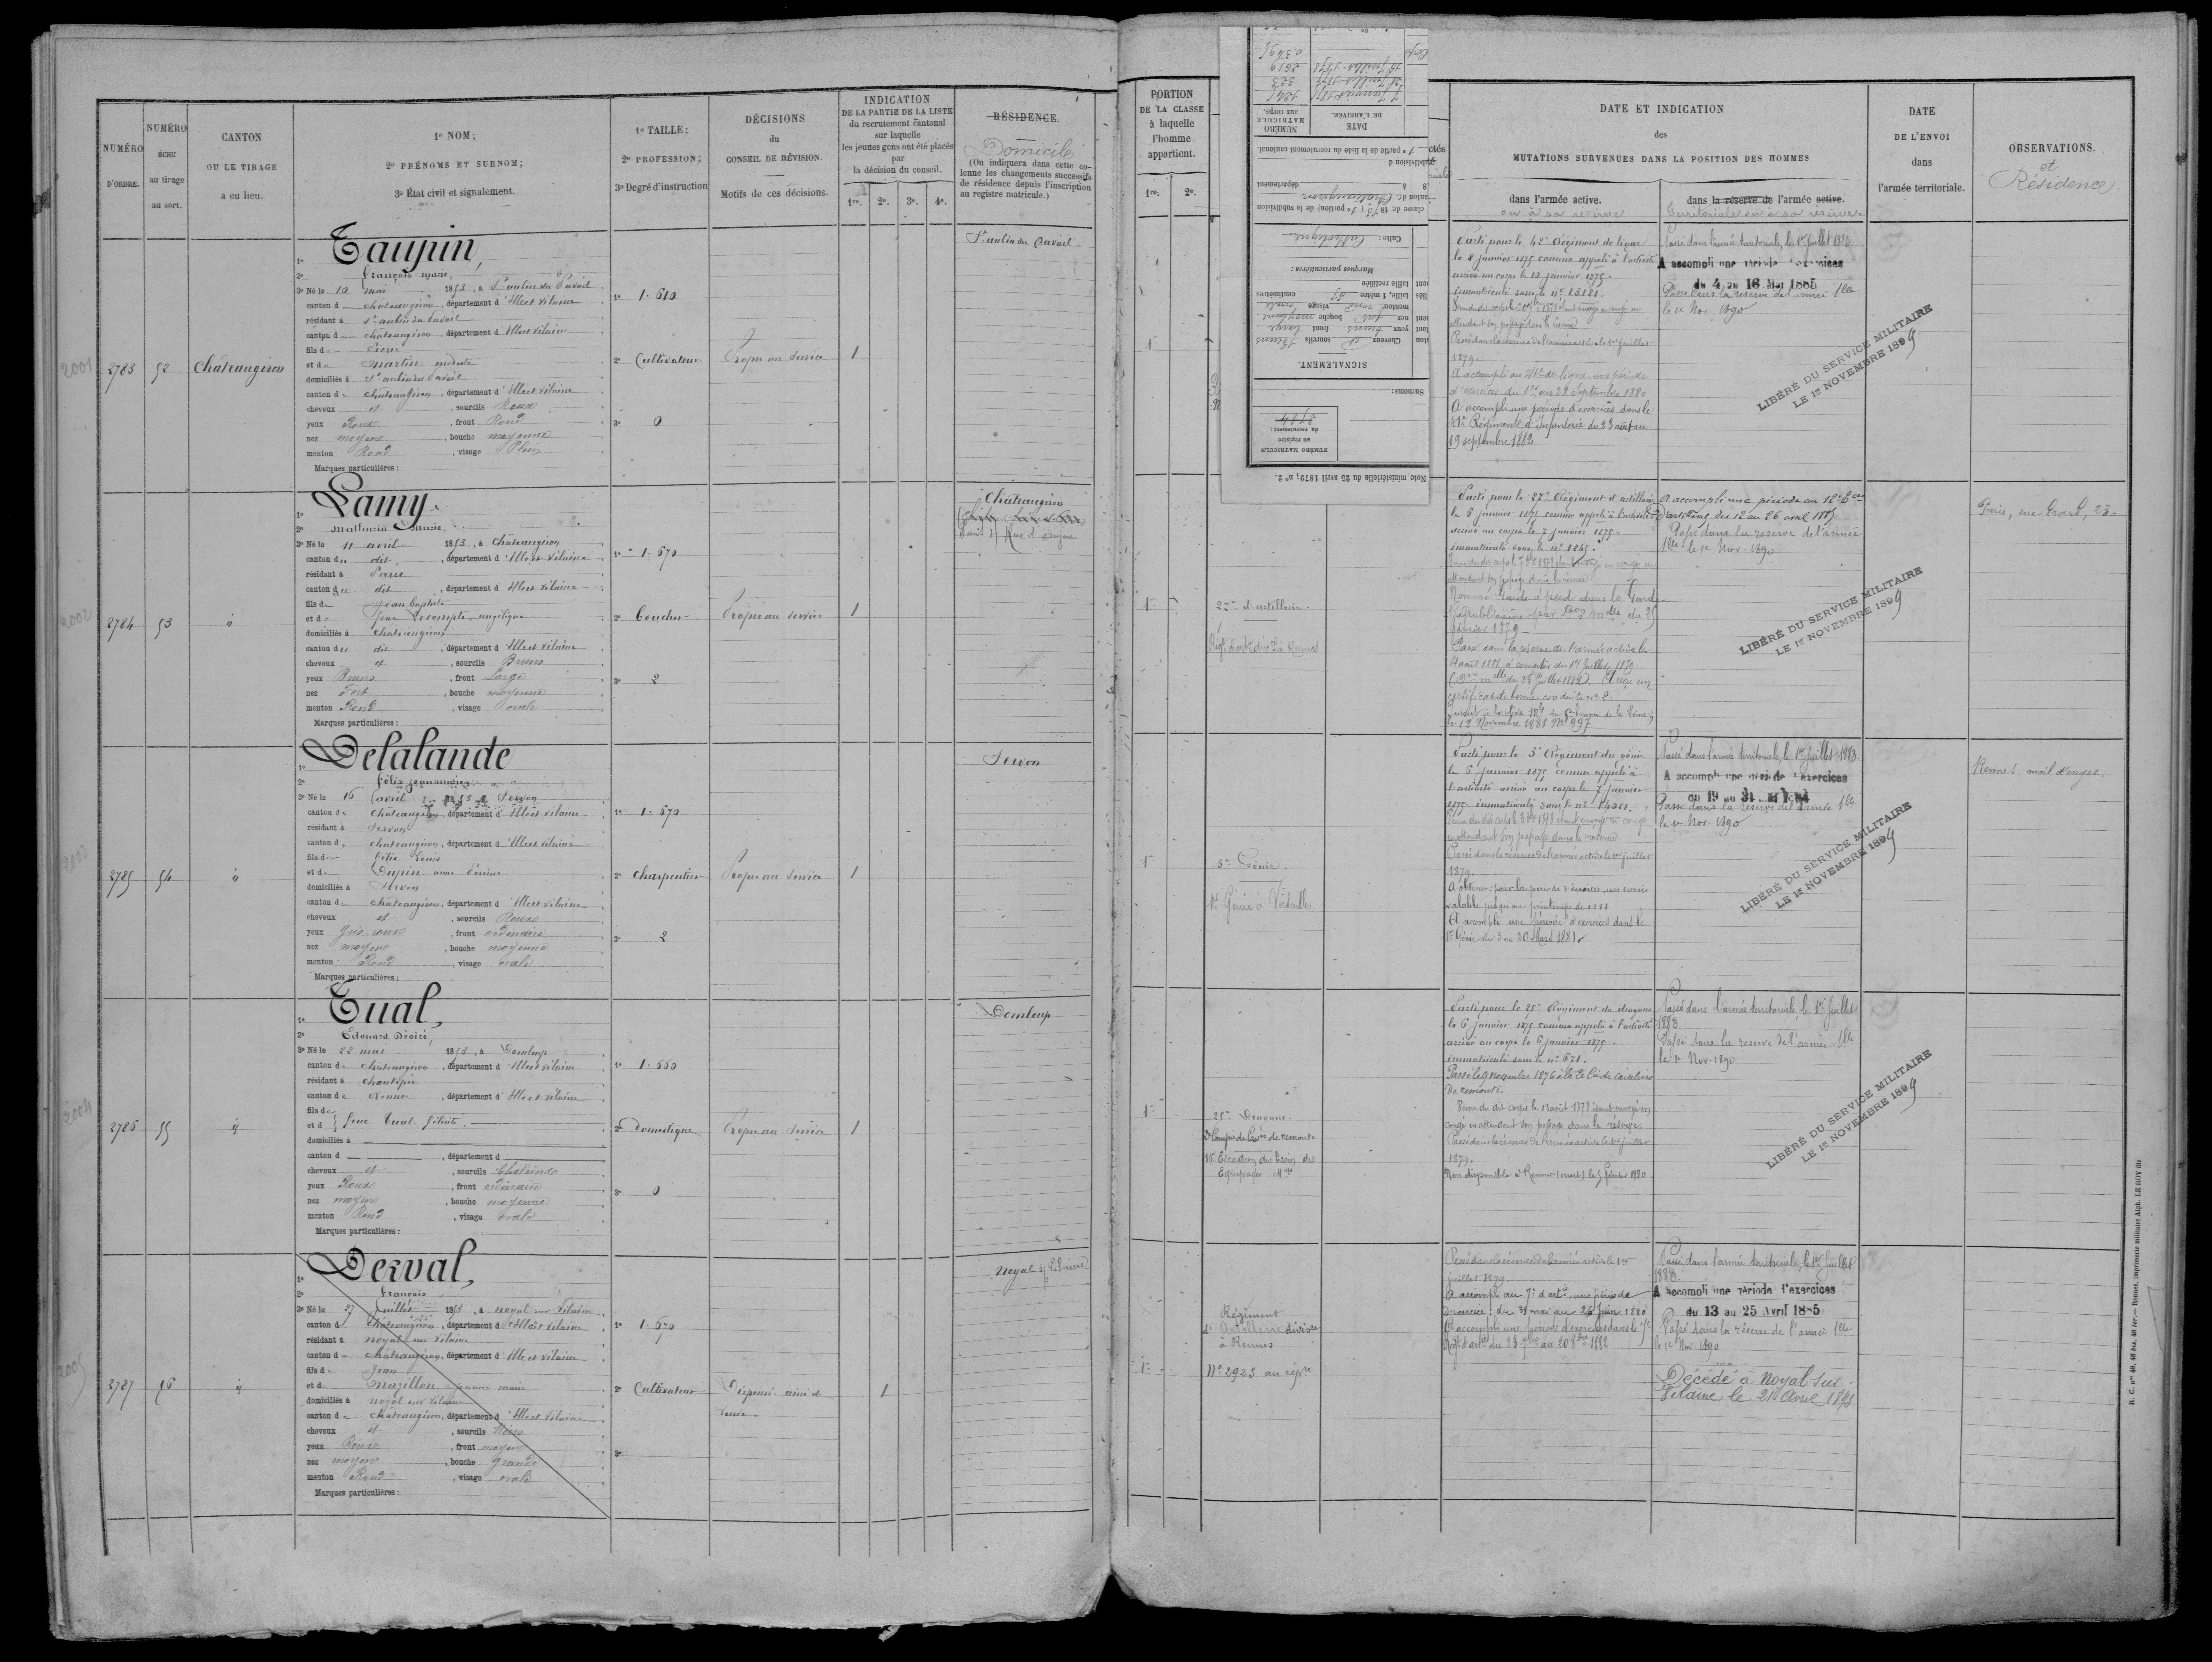 NUMÉRO
D'ORDRE.
NUMÉRO
ÉCHU
au tirage
au sort.
CANTON
OU LE TIRAGE
a eu lieu.
1º NOM;
2º PRÉNOMS ET SURNOM;
3º État civil et signalement.
1º TAILLE;
2º PROFESSION;
3º Degré d'instruction
DÉCISIONS
du
CONSEIL DE RÉVISION.
Motifs de ces décisions.
INDICATION
DE LA PARTIE DE LA LISTE
du recrutement cantonal
sur laquelle
les jeunes gens ont été placés
par
la décision du conseil.
1re. 2e. 3e. 4e.
RÉSIDENCE.
Domicile
(On indiquera dans cette co-
lonne les changements successifs
de résidence depuis l'inscription
au registre matricule.)
2001
2783
52
Châteaugiron
1º Taupin,
2º François marie,
3º Né le 10 mai 1853, à St aubin du Pavail
canton de Châteaugiron, département d'Ille et Vilaine
résidant à St aubin du Pavail
canton de Châteaugiron, département d'Ille et Vilaine
fils de Pierre
et de Martin
domiciliés à St aubin du Pavail
canton de Châteaugiron, département d'Ille et Vilaine
cheveux et, sourcils Roux
yeux Roux, front Rond
nez moyen, bouche moyenne
menton Rond, visage Plein
Marques particulières:
1º 1.610
2º Cultivateur
3º 0
Propre au service
1
St aubin du Pavail
2002
2784
53
"
1º Lamy
2º Mathurin Marie,
3º Né le 11 avril 1853, à Châteaugiron
canton du dit, département d'Ille et Vilaine
résidant à Paris
canton du dit, département d'Ille et Vilaine
fils de Jean Baptiste
et de feue Lecompte, angélique
domiciliés à Châteaugiron
canton du dit, département d'Ille et Vilaine
cheveux et, sourcils Bruns
yeux Bruns, front Large
nez Fort, bouche moyenne
menton Rond, visage ovale
Marques particulières:
1º 1.670
2º boucher
3º 2
Propre au service
1
Châteaugiron
2003
2785
54
"
1º Delalande
2º Félix jean marie
3º Né le 16 avril 1853, à Servon
canton de Châteaugiron, département d'Ille et Vilaine
résidant à Servon
canton de châteaugiron, département d'Ille et Vilaine
fils de Félix Louis
et de Dupin anne Perrine
domiciliés à Servon
canton de châteaugiron, département d'Ille et Vilaine
cheveux et, sourcils Roux
yeux gris roux, front ordinaire
nez moyen, bouche moyenne
menton Rond, visage ovale
Marques particulières:
1º 1.670
2º charpentier
3º 2
Propre au service
1
Servon
2004
2786
55
"
1º Tual,
2º Edouard Désiré,
3º Né le 22 mai 1853, à Domloup
canton de châteaugiron, département d'Ille et Vilaine
résidant à Chantepie
canton de Rennes, département d'Ille et Vilaine
fils de
et d feue Tual Félicité.
domiciliés à
canton d, département d
cheveux et, sourcils Châtains
yeux Roux, front ordinaire
nez moyen, bouche moyenne
menton Rond, visage ovale
Marques particulières:
1º 1.660
2º Domestique
3º 0
Propre au service
1
Domloup
2005
2787
56
"
1º Derval,
2º François
3º Né le 27 juillet 1853, à noyal sur Vilaine
canton d châteaugiron, département d'Ille et Vilaine
résidant à noyal sur Vilaine
canton de châteaugiron, département d'Ille et Vilaine
fils de Jean
et de Mazillon jeanne marie
domiciliés à noyal sur Vilaine
canton de châteaugiron, département d'Ille et Vilaine
cheveux et, sourcils
yeux Roux, front moyen
nez moyen, bouche grande
menton Rond, visage ovale
Marques particulières:
1º 1.670
2º Cultivateur
3º
Dispensé aîné de
1
noyal s/ Vilaine
PORTION
DE LA CLASSE
à laquelle
l'homme
appartient.
1re. 2e.
Note ministérielle du 25 avril 1879; nº 2.
NUMÉRO MATRICULE
au registre
du recrutement:
2784
Surnoms:
SIGNALEMENT.
Cheveux et sourcils Bruns
yeux bruns front large
nez fort bouche moyenne
menton rond visage ovale
taille, 1 mètre 67 centimètres
taille rectifiée
Marques particulières:
Culte: Catholique
classe de 1873 (1re portion) de la subdivision
canton de Châteaugiron
département
subdivision d
1re partie de la liste du recrutement cantonal.
DATE
DE L'ARRIVÉE.
NUMÉRO
MATRICULE
aux corps.
7 Janvier 1875 1245
DATE ET INDICATION
des
MUTATIONS SURVENUES DANS LA POSITION DES HOMMES
dans l'armée active.
ou à sa réserve
dans la réserve de l'armée active.
Territoriale ou à sa réserve.
DATE
DE L'ENVOI
dans
l'armée territoriale.
OBSERVATIONS.
et
Résidence
Parti pour le 42e Régiment de ligne
le 8 janvier 1875 comme appelé à l'activité
arrivé au corps le 10 janvier 1875.
immatriculé sous le nº 13181.
attendant son passage dans la réserve
Passé dans la réserve de l'armée active le 1er juillet
1879.
A accompli au 41e de ligne une période
d'exercices du 1er au 28 Septembre 1880
A accompli une période d'exercices dans le
41e Régiment d'Infanterie du 23 août au
19 septembre 1882
Passé dans l'armée territoriale, le 1er juillet 1883
A accompli une période d'exercices
du 4 au 16 Mai 1885
Passé dans la réserve de l'armée tlle
le 1r Nov. 1890
LIBÉRÉ DU SERVICE MILITAIRE
LE 1er NOVEMBRE 1899
1e
2me d'artillerie.
Parti pour le 27e Régiment d'artillerie
le 6 janvier 1875 comme appelé à l'activité
arrivé au corps le 7 janvier 1875.
immatriculé sous le nº 1245.
attendant son passage dans la réserve
Nommé Garde à pied dans la Garde
Républicaine par Don Mlle du 25
février 1879
Passé dans la réserve de l'armée active le
certificat de bonne conduite
le 12 Novembre 1881 Nº 997
A accompli une période au 10e Een
d'artillerie, du 12 au 26 avril 1885
Passé dans la réserve de l'armée
tlle le 1r Nov. 1890
LIBÉRÉ DU SERVICE MILITAIRE
LE 1er NOVEMBRE 1899
Paris, rue 23
1e
5e Génie.
1er Génie à Versailles
Parti pour le 3e Régiment du génie
le 6 janvier 1875 comme appelé à
l'activité arrivé au corps le 7 janvier
1875. immatriculé sous le nº 14981.
en attendant son passage dans la réserve
Passé dans la réserve de l'armée active le 1er juillet
1879.
A obtenu pour la période d'exercices, un sursis
valable jusqu'au printemps de 1881
A accompli une période d'exercices dans le
1er Génie du 3 au 30 Mars 1881.
Passé dans l'armée territoriale, le 1er juillet 1883
A accompli une période d'exercices
du 19 au 31
Passé dans la réserve de l'armée tlle
le 1r Nov. 1890
LIBÉRÉ DU SERVICE MILITAIRE
LE 1er NOVEMBRE 1899
Rennes mail d'onges.
1e
25e Dragons.
3e Compie de Cavrs de remonte
Escadron du train des
Equipages Mres
Parti pour le 25e Régiment de dragons
le 6 janvier 1875 comme appelé à l'activité
arrivé au corps le 6 janvier 1875.
immatriculé sous le nº 671.
Passé le 9 novembre 1876 à la Cie de cavaliers
de remonte.
Venu du dit corps le 13 août 1878 étant envoyé en
congé en attendant son passage dans la réserve.
Passé dans la réserve de l'armée active le 1er juillet
1879.
Non disponible à Rennes (ouest) le 5 février 1880
Passé dans l'armée territoriale, le 1er juillet
1883
Passé dans la réserve de l'armée tlle
le 1r Nov. 1890
LIBÉRÉ DU SERVICE MILITAIRE
LE 1er NOVEMBRE 1899
1e
Régiment
Artillerie divisre
à Rennes
Nº 2923 au régtre
Passé dans la réserve de l'armée active le 1er
juillet 1879.
A accompli au 7e d'artie une période
d'exercices du 31 mai au 26 juin 1880
A accompli une période d'exercices dans le 7e
Passé dans l'armée territoriale, le 1er juillet
1883.
A accompli une période d'exercices
du 13 au 25 Avril 1885
Passé dans la réserve de l'armée tlle
le 1r Nov. 1890
Décédé à Noyal sur
Vilaine le 21 Avril 1893
R. C. nos 40, 46 bis, 46 ter.— Rennes, imprimerie militaire Alph. LE ROY fils